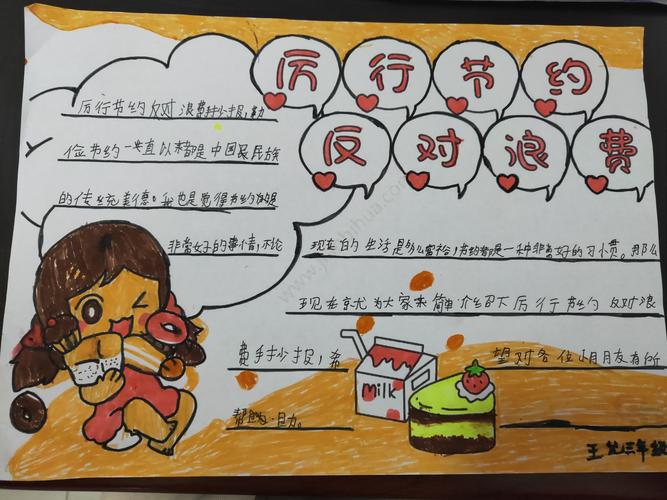 厉行节约
反对浪费
厉行节约反对浪费手抄报,勤
俭节约一直以来都是中国民族
的传统美德。我也是觉得节约
非常好的事情,不论
现在的生活是多么富裕,节约都是一种非常好的习惯。那么
现在就为大家来简单介绍下厉行节约反对浪
费手抄报,希
望对各位小朋友有所
帮助
Milk
三年级